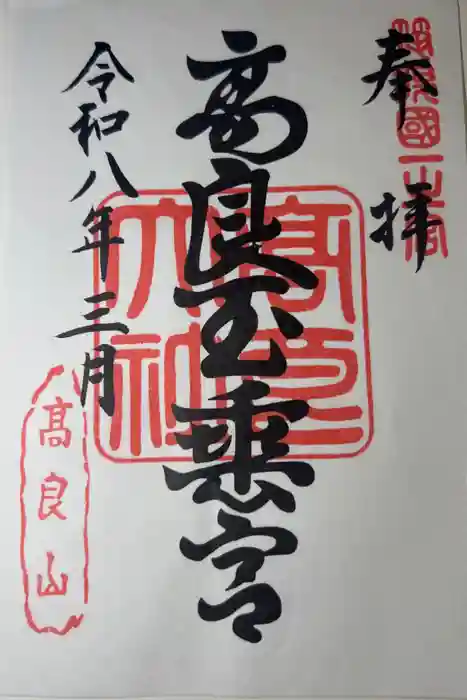 奉拝
筑後國一之宮
高良玉垂宮
高良
大神
令和八年三月
高良山